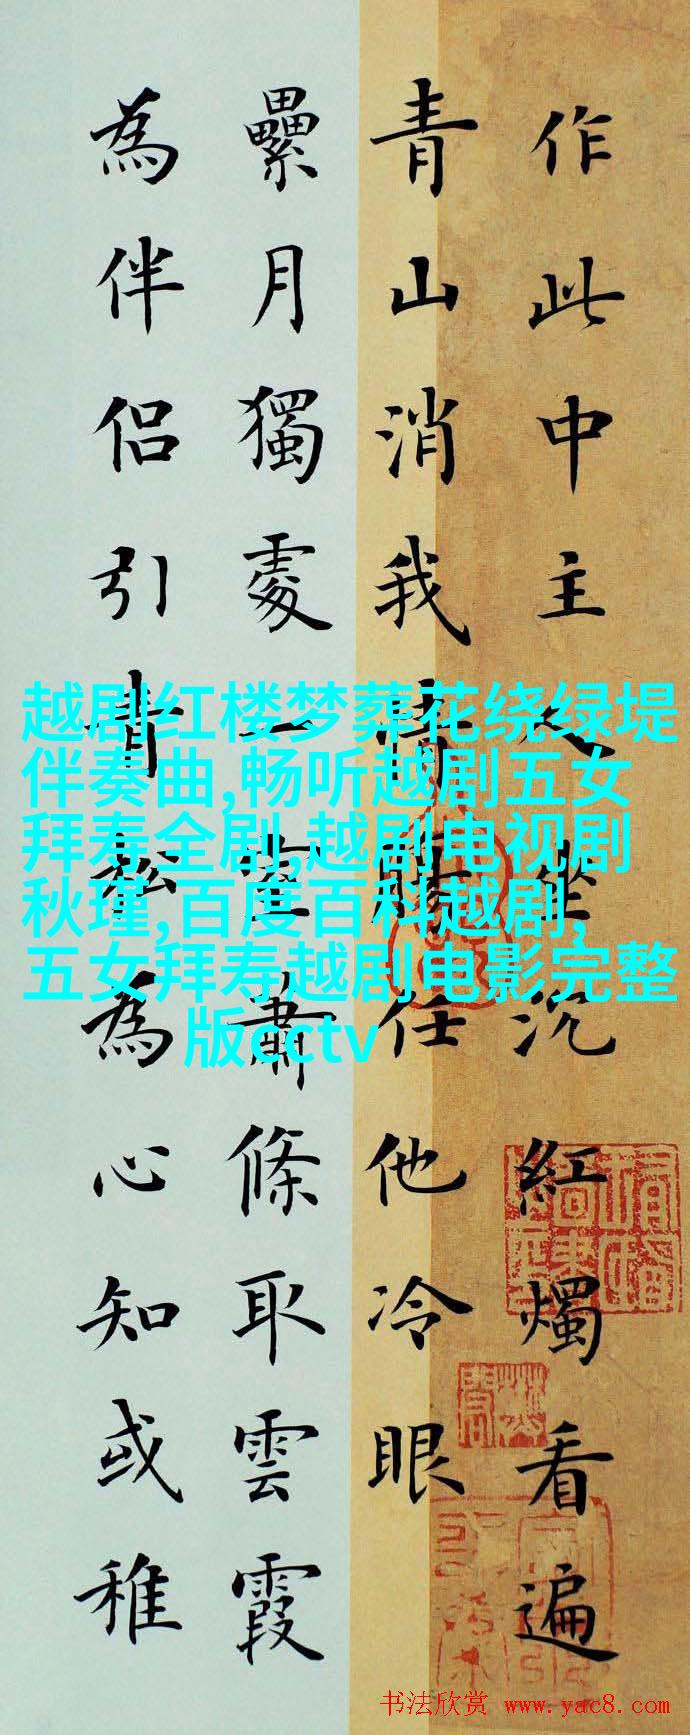 作此中主人坐沉紅燭看遍
青山消我情腸任他冷眼
纍月獨處一室蕭條取雲霞
為伴侶引青松為心知或稚
越剧红楼梦葬花绕绿堤
伴奏曲,畅听越剧五女
拜寿全剧,越剧电视剧
秋瑾,百度百科越剧,
五女拜寿越剧电影完整
版cctv
书法欣赏 www.yac8.com